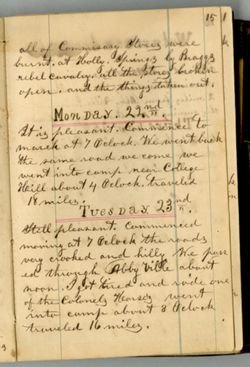 15
all of Commisary Stores were
burnt. at Holly Springs by Braggs
rebel cavalry. all the stores broken
open. and the things taken out.
Monday. 22nd.
It is pleasant. Commenced to
march at 7 Oclock. We went back
the same road we come we
went into camp near College
Hill about 4 Oclock. traveled
18 miles.
Tuesday 23rd.
Still pleasant. Commenced
moving at 7 Oclock the roads
very crooked and hilly We pass
ed through Abby Ville about
noon. I got tired and rode one
of the Colonels Horses went
into camp about 8 Oclock
traveled 16 miles.